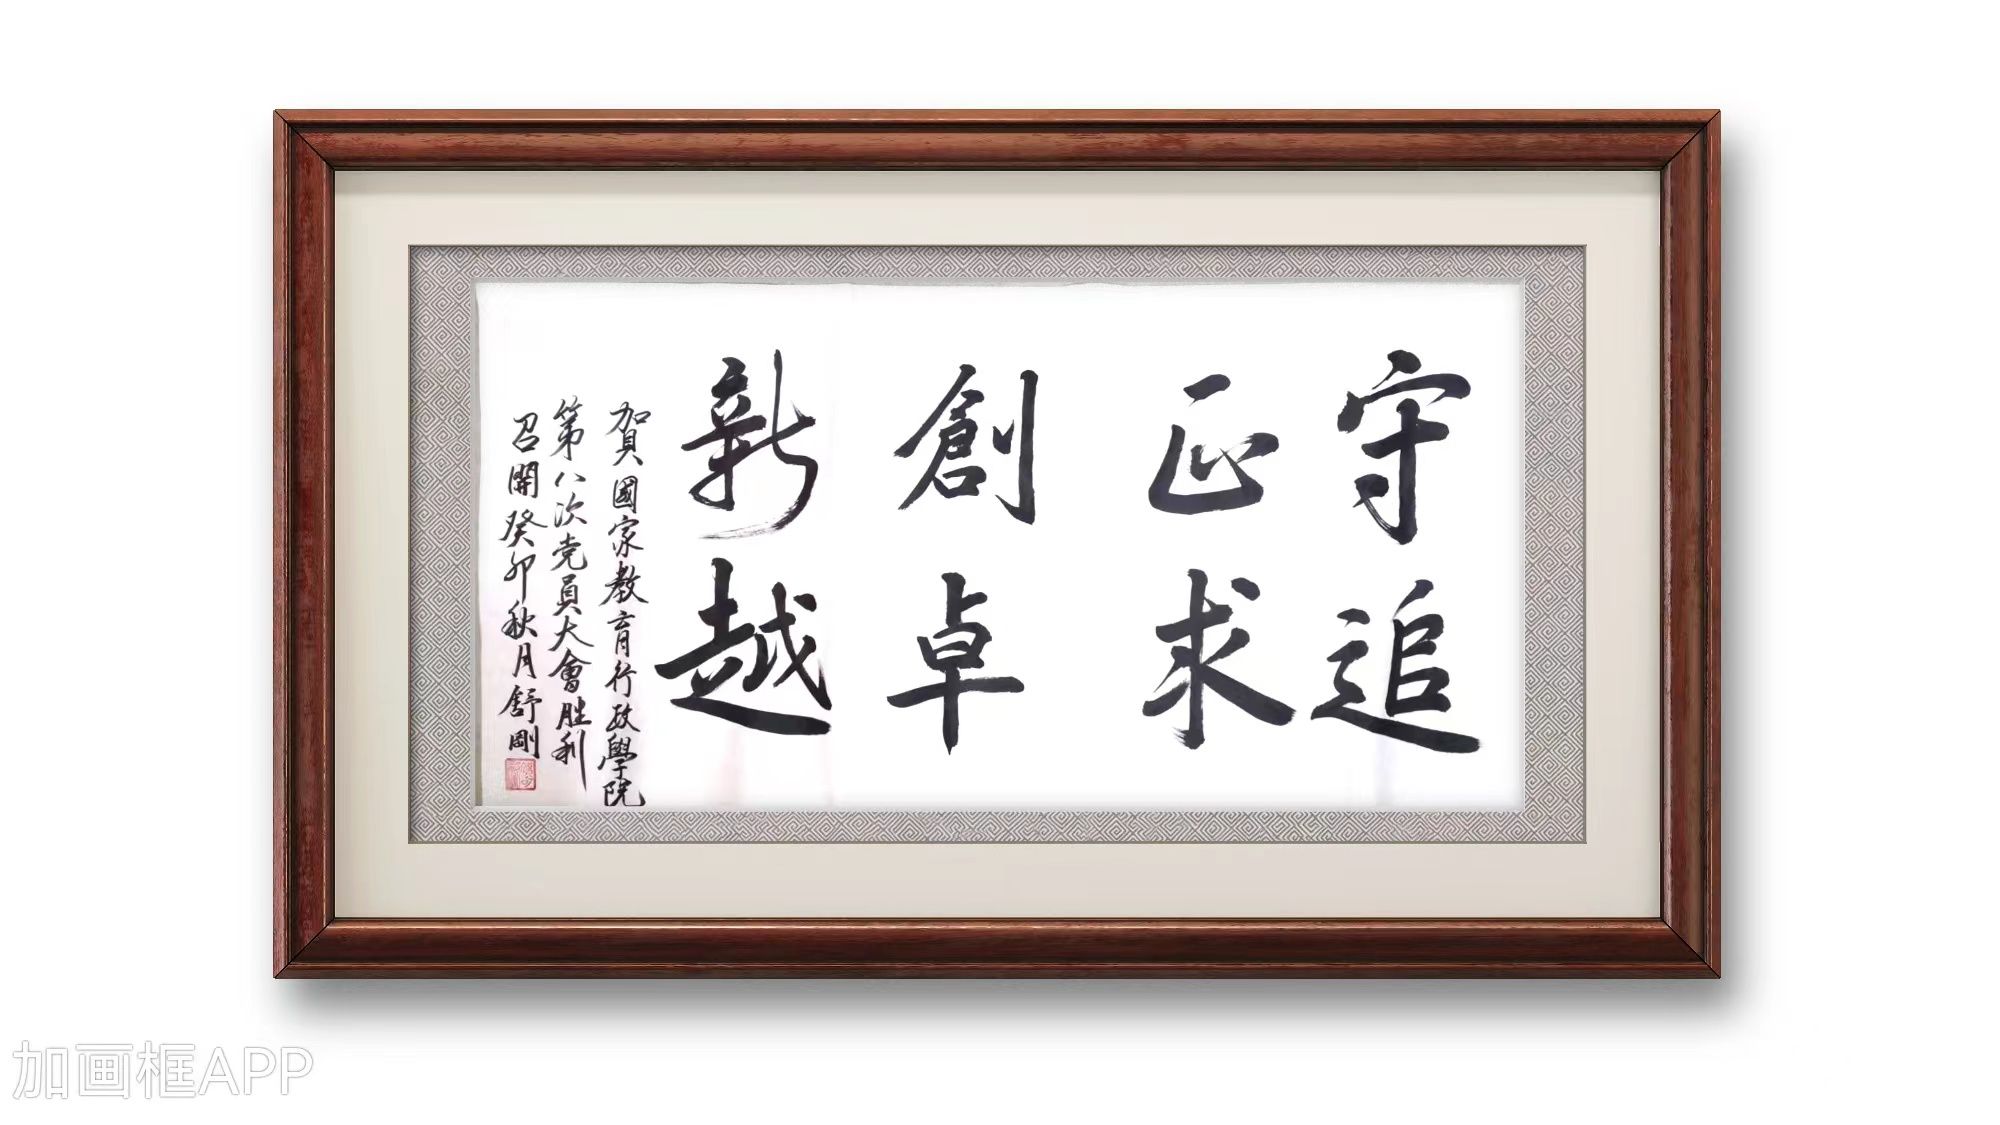 守正創新
追求卓越
賀國家教育行政學院
第八次党員大會胜利
召開癸卯秋月舒剛
加画框APP